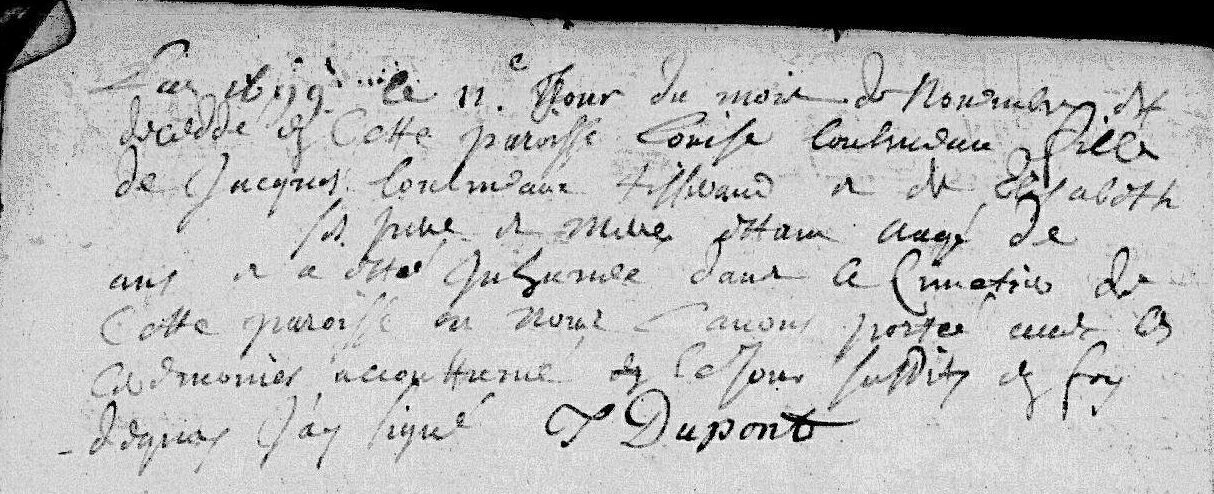 L'an 1699 le 11e Jour du mois de Novembre est
decedé en Cette paroisse Louise fille
de Jacques tisserand et de Elisabeth
ses pere et mere estant aagé de
ans et a esté Inhumée dans le Cimetiere de
Cette paroisse ou nous L'avons portée avec les
ceremonies accouttumé en le Jour susdit en foy
dequoy J'ay signé J Dupont